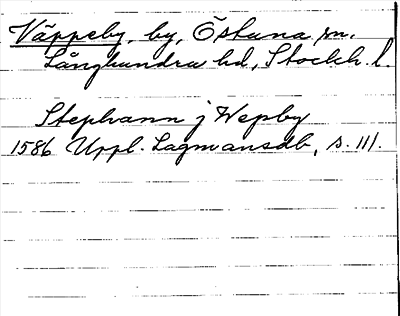 Väppeby, by, Östuna sn.
Långhundra hd, Stockh. l.
Stephann j Wepby
1586 Uppl. Lagmansdb, s. 111.